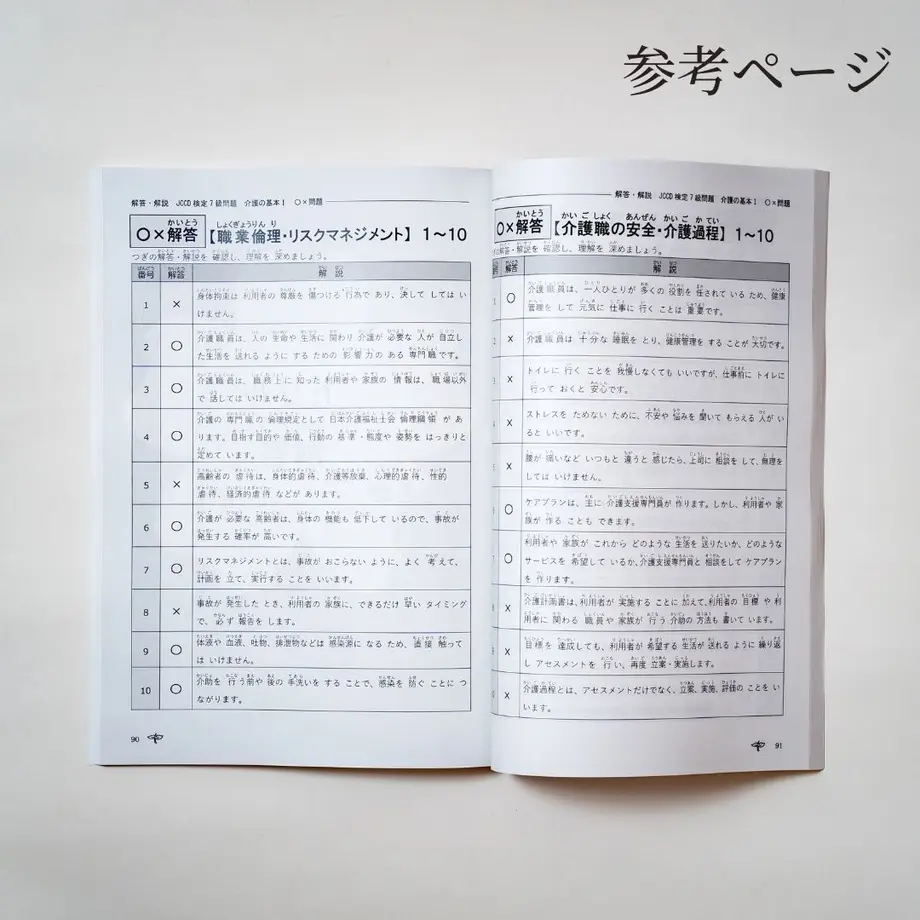 参考ページ
解答・解説 JCCD検定7級問題 介護の基本1 〇×問題
〇×解答【職業倫理・リスクマネジメント】1～10
つぎの解答・解説を確認し、理解を深めましょう。
番号 解答 解説
1 × 身体拘束は 利用者の 尊厳を 傷つける 行為で あり、決して しては い
けません。
2 〇 介護職員は、人の 生命や 生活に 関わり 介護が 必要な 人が 自立し
た生活を 送れる ように するための 影響力の ある 専門職です。
3 〇 介護職員は、職務上に 知った 利用者や 家族の 情報は、職場以外
で 話しては いけません。
4 〇 介護の 専門職の 倫理規定として 日本介護福祉士会 倫理綱領 が あ
ります。目指す目的や 価値、行動の 基準・態度や 姿勢を はっきりと
定めて います。
5 × 高齢者の 虐待は、身体的虐待、介護等放棄、心理的虐待、性的
虐待、経済的虐待 などが あります。
6 〇 介護が 必要な 高齢者は、身体の 機能も 低下して いるので、事故が
発生する 確率が 高いです。
7 〇 リスクマネジメントとは、事故が おこらない ように、よく 考えて、
計画を 立て、実行する ことを いいます。
8 × 事故が 発生した とき、利用者の 家族に、できるだけ 早い タイミング
で、必ず 報告を します。
9 〇 体液や 血液、吐物、排泄物などは 感染源に なる ため、直接 触って
は いけません。
10 〇 介助を 行う前や 後の 手洗いを する ことで、感染を 防ぐ ことに つ
ながります。
90
解答・解説 JCCD検定7級問題 介護の基本1 〇×問題
〇×解答【介護職の安全・介護過程】1～10
解答・解説を 確認し、理解を 深めましょう。
解答 解説
〇 介護職員は、一人ひとりが 多くの 役割を 任されて いる ため、健康
管理を して 元気に 仕事に 行く ことは 重要です。
× 介護職員は 十分な 睡眠を とり、健康管理を する ことが 大切です。
× トイレに 行く ことを 我慢しなくても いいですが、仕事前に トイレに
行って おくと 安心です。
× ストレスを ためない ために、不安や 悩みを 聞いて もらえる 人が い
ると いいです。
× 腰が 痛いなど いつもと 違うと 感じたら、上司に 相談を して、無理を
しては いけません。
〇 ケアプランは、主に 介護支援専門員が 作ります。しかし、利用者や 家
族が 作る ことも できます。
〇 利用者や 家族が これから どのような 生活を 送りたいか、どのような
サービスを 希望して いるか、介護支援専門員と 相談をして ケアプラン
を 作ります。
× 介護計画書は、利用者が 実施する ことに 加えて、利用者の 目標 や 利
用者に 関わる 職員や 家族が 行う 介助の 方法も 書いて います。
× 目標を 達成しても、利用者が 希望する 生活が 送れる ように 繰り返
し アセスメントを 行い、再度 立案・実施します。
× 介護過程とは、アセスメントだけでなく、立案、実施、評価の ことを い
います。
91